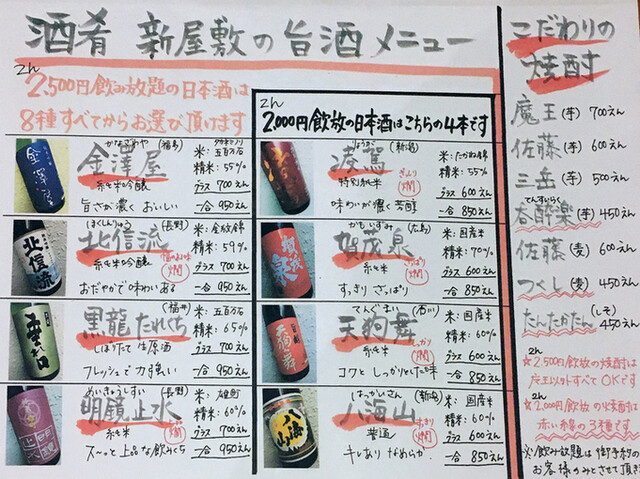 酒肴 新屋敷の旨酒メニュー
2,500円飲み放題の日本酒は
8種すべてからお選び頂けます
2,000円飲放の日本酒はこちらの4本です
かなざわや (福島)
金澤屋
純米吟醸
旨さが濃く おいしい
米:五百万石
精米:55%
グラス 700えん
一合 950えん
ほくしんりゅう (長野)
北信流
純米吟醸
おだやかで味わいある
米:金紋錦
精米:59%
グラス 700えん
一合 950えん
(福井)
黒龍 たれくち
しぼりたて 生原酒
フレッシュで力強い
米:五百万石
精米:65%
グラス 700えん
一合 950えん
めいきょうしすい (長野)
明鏡止水
純米
ス〜ッと上品な飲みくち
米:雄町
精米:60%
グラス 700えん
一合 950えん
(新潟)
特別純米
味わいが濃く芳醇
米:たかね錦
精米:55%
グラス 600えん
一合 850えん
かもいずみ (広島)
賀茂泉
純米
すっきり さっぱり
さっぱり 燗
米:国産米
精米:70%
グラス 600えん
一合 850えん
てんぐまい (石川)
天狗舞
純米
コクと しっかりとした味
しっかり 燗
米:国産米
精米:60%
グラス 600えん
一合 850えん
はっかいさん (新潟)
八海山
普通
キレあり なめらか
米:国産米
精米:60%
グラス 600えん
一合 850えん
こだわりの
焼酎
魔王(芋) 700えん
佐藤(芋) 600えん
三岳(芋) 500えん
てんすいらく
呑酔楽(芋) 450えん
佐藤(麦) 600えん
つくし(麦) 450えん
たんたかたん(しそ) 450えん
☆2,500円飲放の焼酎は
魔王以外すべてOKです
☆2,000円飲放の焼酎は
赤い線の3種です
※飲み放題は御予約の
お客様のみとさせて頂き